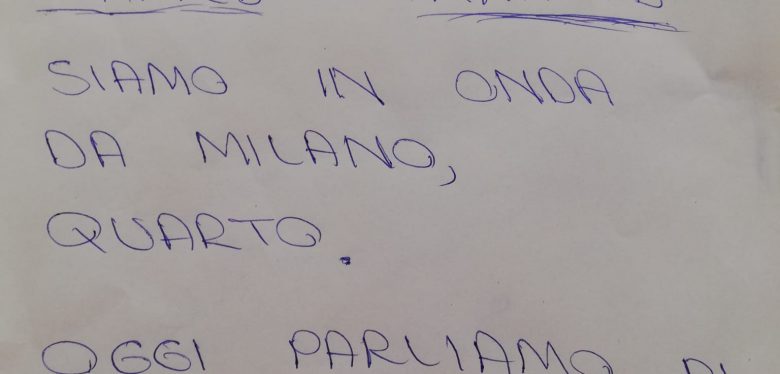 SIAMO IN ONDA
DA MILANO,
QUARTO.
OGGI PARLIAMO DI